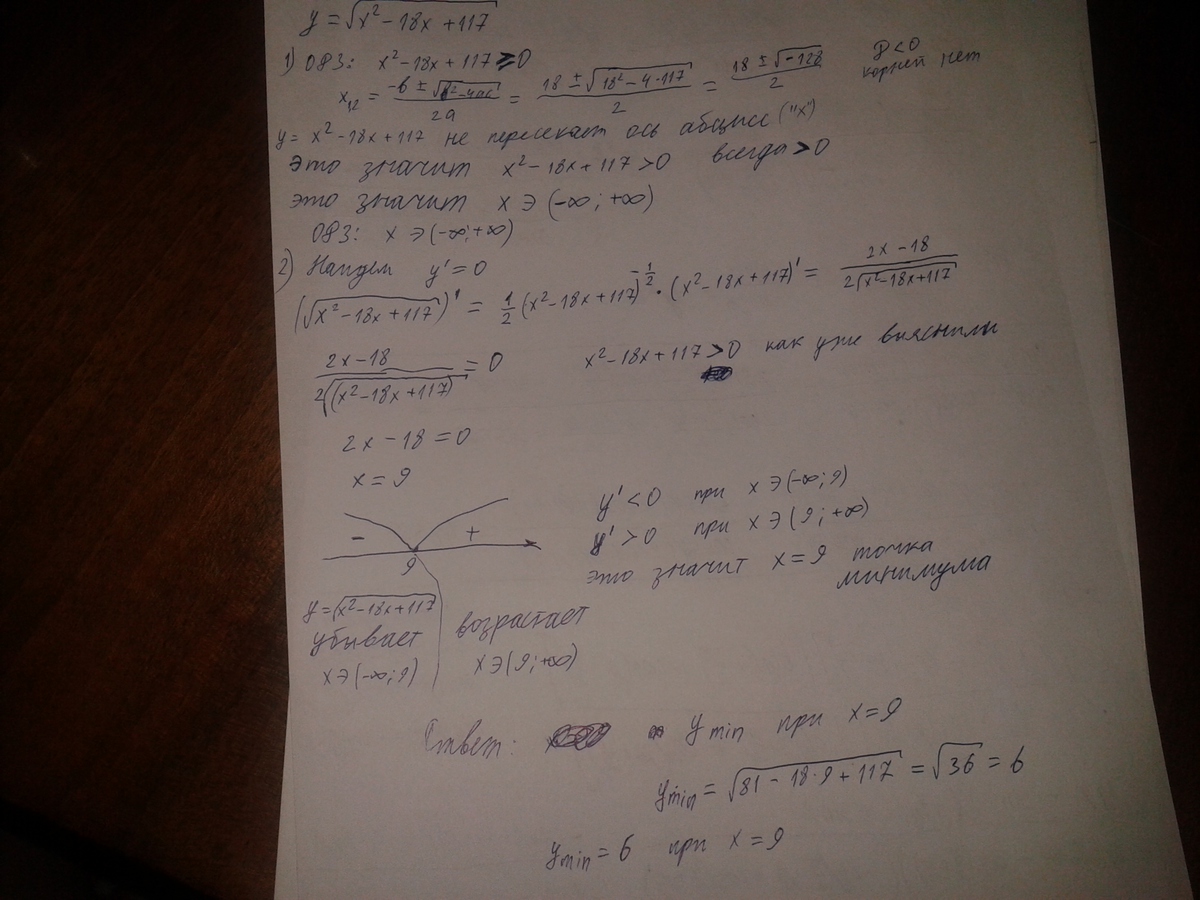 y = √(x² - 18x + 117)
1) ОДЗ: x² - 18x + 117 ≥ 0
x₁₂ = (-b ± √(b² - 4ac))/2a = (18 ± √(18² - 4·117))/2 = (18 ± √(-128))/2 D < 0 корней нет
y = x² - 18x + 117 не пересекает ось абцисс ("x")
это значит x² - 18x + 117 > 0 всегда > 0
это значит x ∋ (-∞; +∞)
ОДЗ: x ∋ (-∞; +∞)
2) Найдем y' = 0
(√(x² - 18x + 117))' = 1/2 (x² - 18x + 117)^(-1/2) · (x² - 18x + 117)' = (2x - 18)/(2√(x² - 18x + 117))
(2x - 18)/(2√(x² - 18x + 117)) = 0 x² - 18x + 117 > 0 как уже выяснили
2x - 18 = 0
x = 9
- + 9
y' < 0 при x ∋ (-∞; 9)
y' > 0 при x ∋ (9; +∞)
это значит x = 9 точка минимума
y = √(x² - 18x + 117)
убывает возрастает
x ∋ (-∞; 9) x ∋ (9; +∞)
Ответ: y min при x = 9
y min = √(81 - 18·9 + 117) = √36 = 6
y min = 6 при x = 9